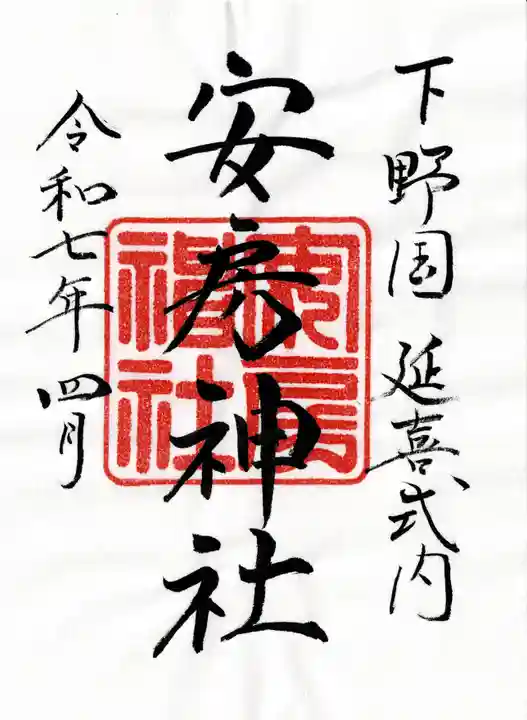 下野国 延喜式内
安房神社
令和七年四月
安房
神社